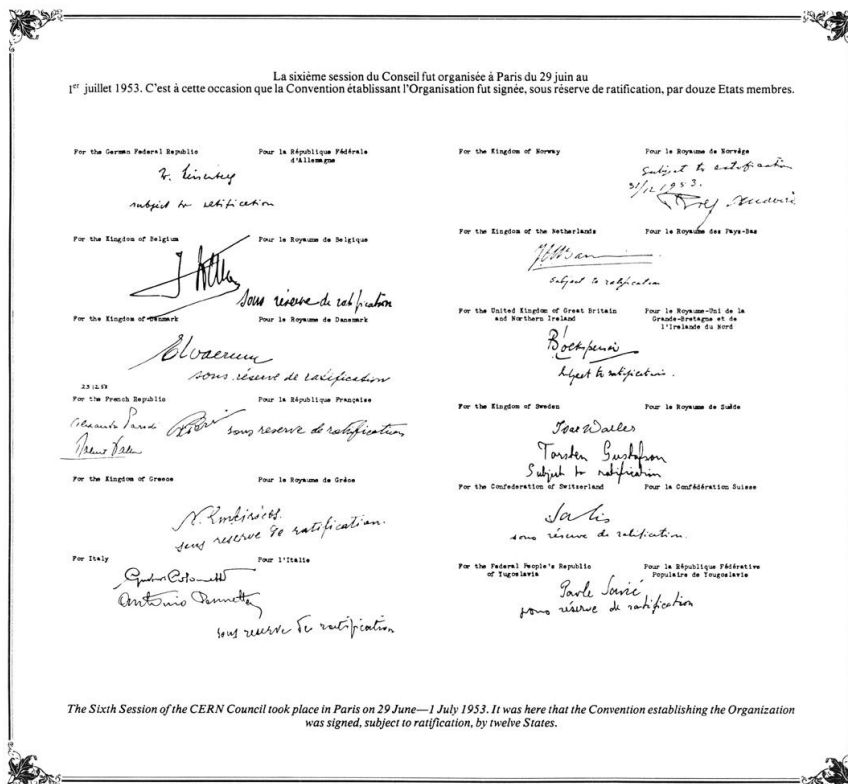 La sixième session du Conseil fut organisée à Paris du 29 juin au
1er juillet 1953. C'est à cette occasion que la Convention établissant l'Organisation fut signée, sous réserve de ratification, par douze Etats membres.
For the German Federal Republic
Pour la République Fédérale
d'Allemagne
subject to ratification
For the Kingdom of Belgium
Pour le Royaume de Belgique
sous réserve de ratification
For the Kingdom of Denmark
Pour le Royaume de Danemark
sous réserve de ratification
For the French Republic
Pour la République Française
sous reserve de ratification
For the Kingdom of Greece
Pour le Royaume de Grèce
sous reserve de ratification.
For Italy
Pour l'Italie
Antonio Pennetta
sous reserve de ratification
For the Kingdom of Norway
Pour le Royaume de Norvège
Subject to ratification
31/12 1953.
For the Kingdom of the Netherlands
Pour le Royaume des Pays-Bas
subject to ratification
For the United Kingdom of Great Britain
and Northern Ireland
Pour le Royaume-Uni de la
Grande-Bretagne et de
l'Irelande du Nord
subject to ratification.
For the Kingdom of Sweden
Pour le Royaume de Suède
Ivar Waller
Torsten Gustafson
Subject to ratification
For the Confederation of Switzerland
Pour la Confédération Suisse
sous réserve de ratification.
For the Federal People's Republic
of Yugoslavia
Pour la République Fédérative
Populaire de Yougoslavie
Pavle Savić
sous réserve de ratification
The Sixth Session of the CERN Council took place in Paris on 29 June—1 July 1953. It was here that the Convention establishing the Organization
was signed, subject to ratification, by twelve States.